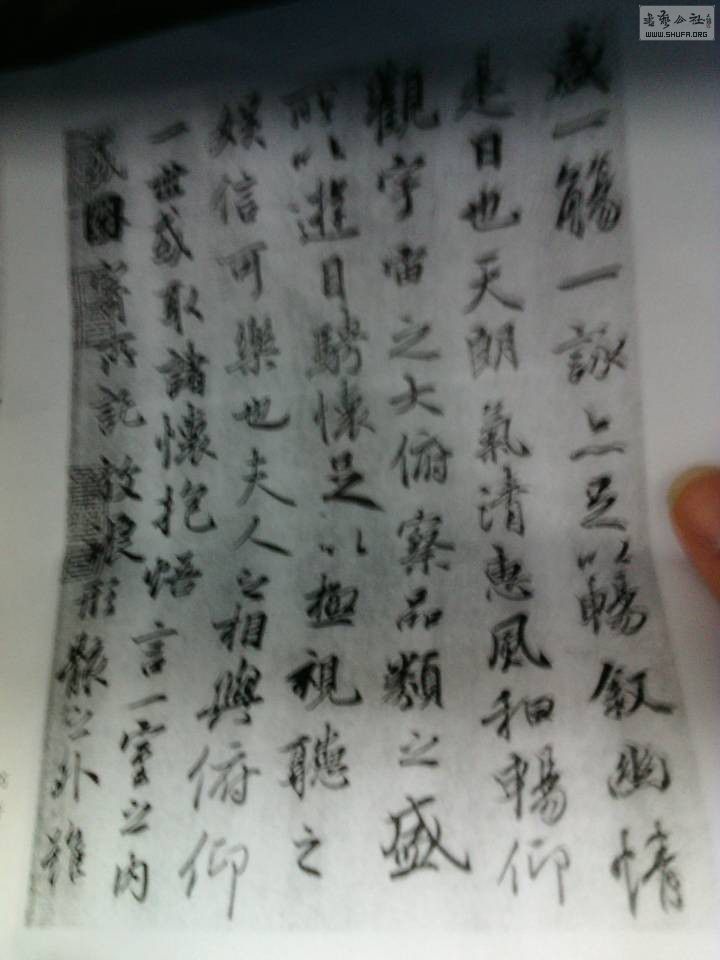 盛一觴一詠亦足以暢叙幽情
是日也天朗氣清惠風和暢仰
觀宇宙之大俯察品類之盛
所以遊目騁懷足以極視聽之
娱信可樂也夫人之相與俯仰
一世或取諸懷抱悟言一室之内
或因寄所託放浪形骸之外雖
書藝公社
WWW.SHUFA.ORG